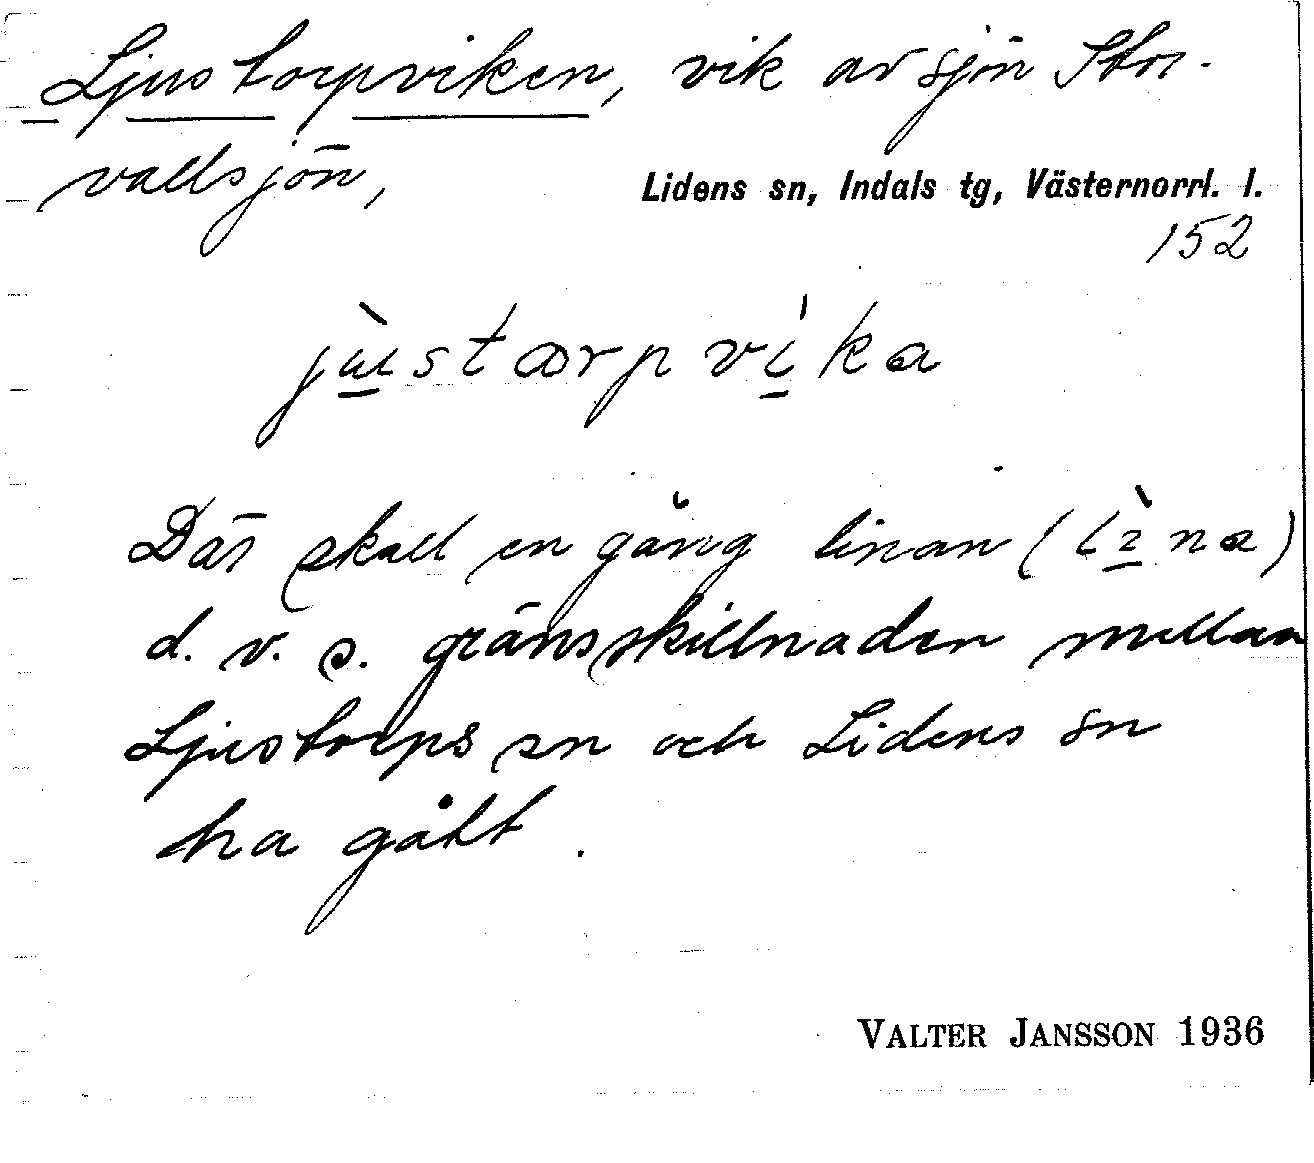 Ljustorpviken, vik av sjön Stor-
vallsjön,
Lidens sn, Indals tg, Västernorrl. l.
152
jùstɷrpvíka
Där skall en gång linan (lìna)
d. v. s. gränsskillnaden mellan
Ljustorps sn och Lidens sn
ha gått.
VALTER JANSSON 1936